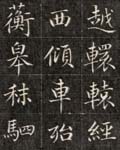 越轘轅經
西傾車殆
蘅皋秣駟